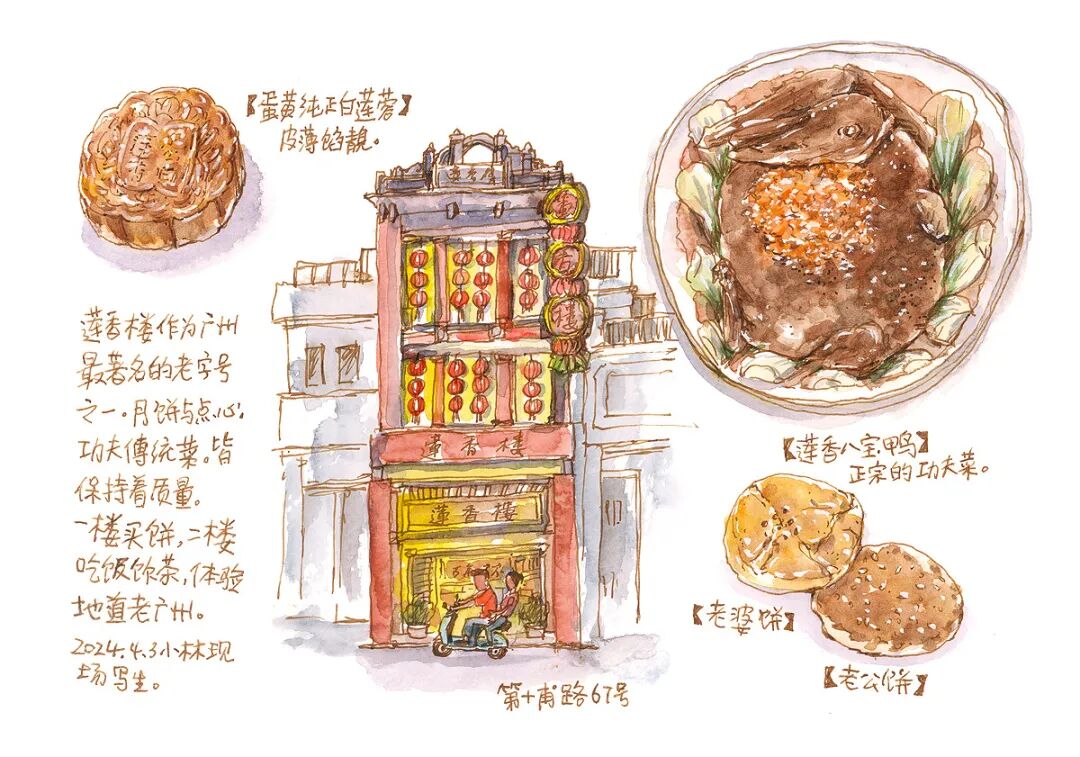 【蛋黄纯正白莲蓉】
皮薄馅靓。
莲香
莲香楼作为广州
最著名的老字号
之一。月饼与点心,
功夫傳统菜。皆
保持着质量。
一楼买饼,二楼
吃饭饮茶,体验
地道老广州。
2024.4.3小林现
场写生。
蓮香楼
蓮香楼
第十甫路67号
【莲香八宝鸭】
正宗的功夫菜。
【老婆饼】
【老公饼】